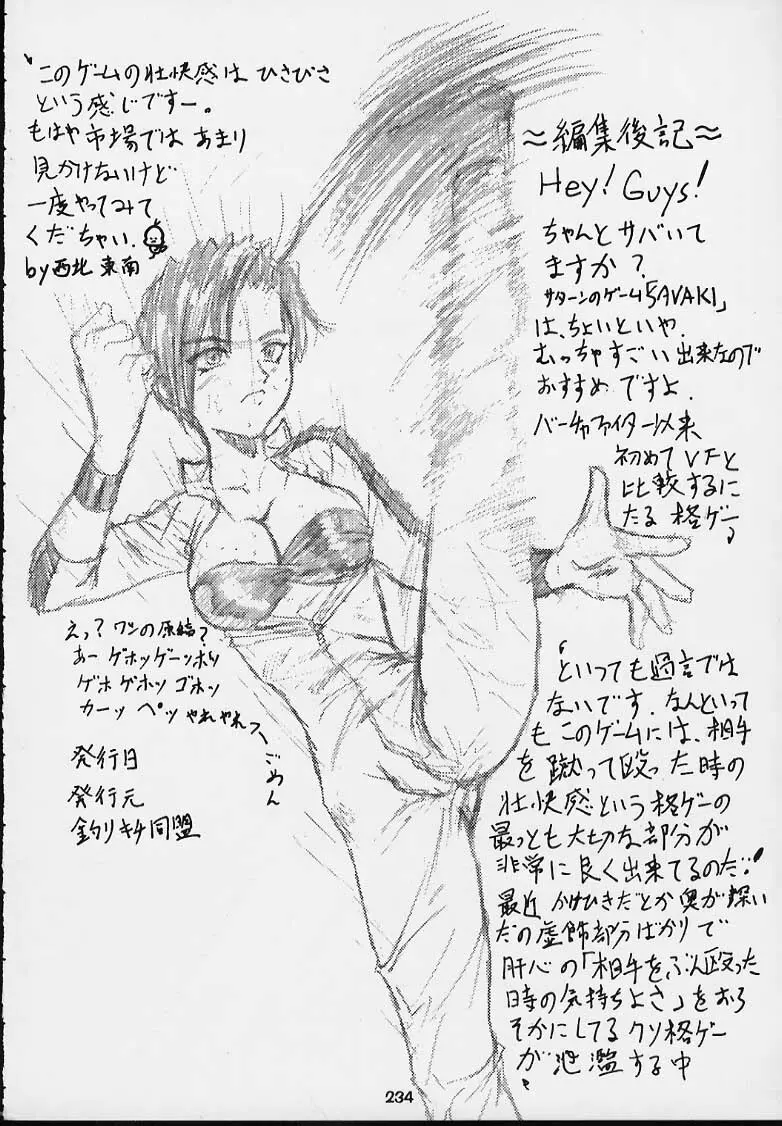 ≈編集後記≈
Hey! Guys!
ちゃんとサバいて
ますか？
サターンのゲーム「SAVAKI」
は、ちょいといや、
むっちゃすごい出来なので
おすすめですよ。
バーチャファイター以来
初めてVFと
比較するに
たる格ゲー
といっても過言では
ないです。なんといって
もこのゲームには、相手
を蹴って殴った時の
壮快感という格ゲーの
最っとも大切な部分が
非常に良く出来てるのだ。
最近かけひきだとか奥が深い
だの虚飾部分ばかりで
肝心の「相手をぶん殴った
時の気持ちよさ」をおろ
そかにしてるクソ格ゲー
が氾濫する中
このゲームの壮快感はひさびさ
という感じですー。
もはや市場ではあまり
見かけないけど
一度やってみて
くだちゃい。
by西北東南
えっ？ワシの原稿？
あーゲホッゲーッホッ
ゲホゲホッゴホッ
カーッペッやれやれっ
ごめん
発行日
発行元
釣りキチ同盟
234